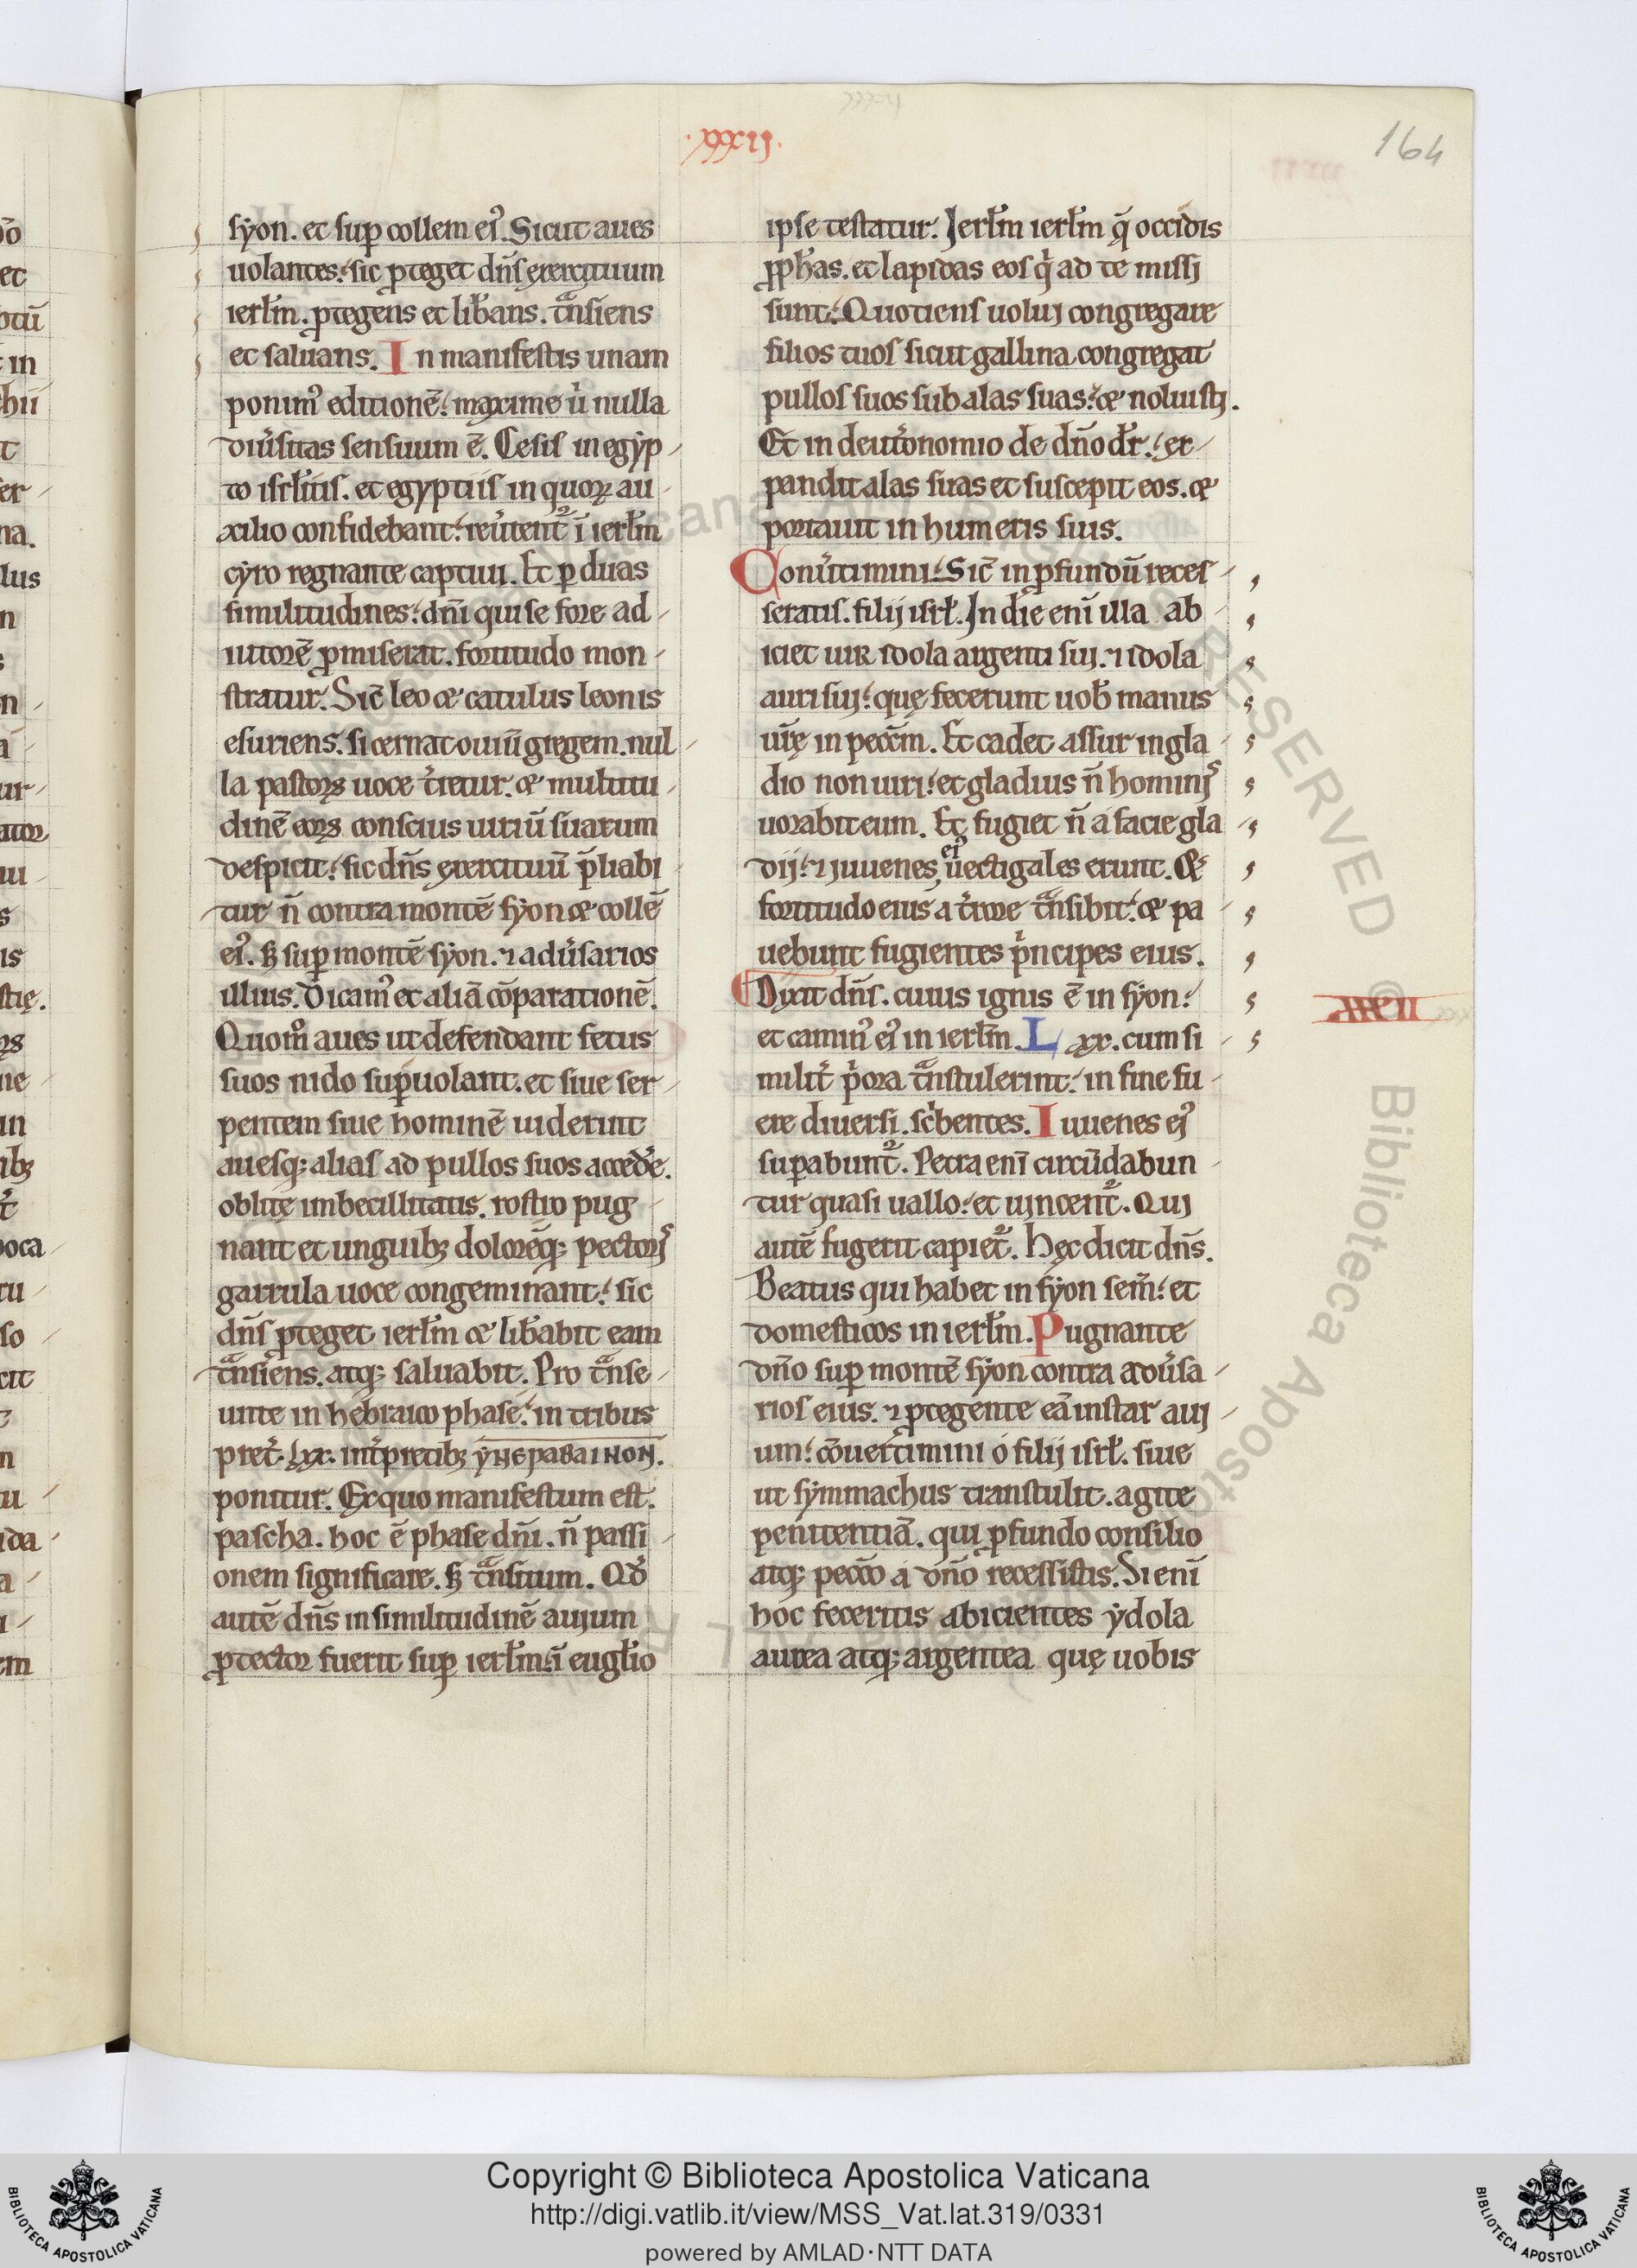 .xxxii.
164
syon. et sup̱ collem ei᷒. Sicut aues
uolantes. sic ꝓteget dn̄s exercituum
ierłm. ꝓtegens et lib̄ans. tͣnsiens
et saluans. In manifestis unam
ponim᷒ editionē. maxime ů nulla
diu̓sitas sensuum ē. Cesis in egyp
to isrł̓itis. et egyptiis in quoꝝ au
xilio confidebant. reu̓tent᷑ ī ierłm
cyro regnante captiui. Et ꝑ duas
similitudines. dn̄i qui se fore ad
iutorē ꝓmiserat. fortitudo mon
stratur. Sic̄ leo et catulus leonis
esuriens. si cernat ouiū gregem. nul
la pastorꝫ uoce t̓retur. et multitu
dinē eorꝫ conscius uiriū suarum
despicit. sic dn̄s exercituū p̄liabi
tur n̄ contra montē syon et collē
ei᷒. ꝫ sup̱ montē syon. ⁊ adu̓sarios
illius. Dicam᷒ et aliā cōparationē.
Quom̊ aues ut defendant fetus
suos nido suꝑuolant. et siue ser
pentem siue hominē uiderint
auesqꝫ alias ad pullos suos acced̓e.
oblitę imbecillitatis. rostro pug
nant et unguibꝫ dolorēqꝫ pectoris
garrula uoce congeminant. sic
dn̄s ꝓteget ierłm et lib̄abit eam
tͣnsiens. atqꝫ saluabit. Pro tͣnse
unte in hebraico phase. in tribus
pret̓. lxx. int̓pretibꝫ yπεpαβαιnon.
ponitur. Ex quo manifestum est.
pascha. hoc ē phase dn̄i. n̄ passi
onem significare. ꝫ tͣnsitum. Qd̓
autē dn̄s in similitudinē auium
ꝓtector fuerit sup̱ ierłm. ī eugło
ipse testatur. Ierłm ierłm q̄ occidis
ꝓph̄as. et lapidas eos qͥ ad te missi
sunt. Quotiens uolui congregare
filios tuos sicut gallina congregat
pullos suos sub alas suas. et noluisti.
Et in deut̓onomio de dn̄o dr̄. ex
pandit alas suas et suscepit eos. et
portauit in humeris suis.
Conu̓timini. Sic̄ in ꝓfundū reces
seratis. filii isrł. In die enī illa ab
iciet uir idola argenti sui. ⁊ idola
auri sui. quę fecerunt uob̄ manus
ur̄ę in pecc̄m. Et cadet assur in gla
dio non uiri. et gladius n̄ hominis
uorabit eum. Et fugiet n̄ a facie gla
dii. ⁊ iuuenes ei᷒ uectigales erunt. Et
fortitudo eius a t̓rore tͣnsibit. et pa
uebunt fugientes pͥncipes eius.
Dixit dn̄s. cuius ignis ē in syon.
xxxii
et camin᷒ ei᷒ in ierłm. Lxx. cum si
milit̓ pͥora tͣnstulerint. in fine fu
ere diuersi. sc̓bentes. Iuuenes ei᷒
suꝑabunt᷑. Petra enī circūdabun
tur quasi uallo. et uincent᷑. Qui
autē fugerit capiet᷑. Hęc dicit dn̄s.
Beatus qui habet in syon sem̄. et
domesticos in ierłm. Pugnante
dn̄o sup̱ montē syon contra adu̓sa
rios eius. ⁊ ꝓtegente eā instar aui
um. cōuertimini o filii isrł. siue
ut symmachus transtulit. agite
penitentiā. qui ꝓfundo consilio
atqꝫ pecc̄o a dn̄o recessistis. Si enī
hoc feceritis abicientes ydola
aurea atqꝫ argentea quę uobis
Copyright © Biblioteca Apostolica Vaticana
http://digi.vatlib.it/view/MSS_Vat.lat.319/0331
powered by AMLAD·NTT DATA
BIBLIOTECA APOSTOLICA VATICANA
BIBLIOTECA APOSTOLICA VATICANA